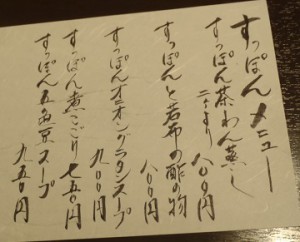 すっぽんメニュー
すっぽん茶わん蒸し
二ヶより 八〇〇円
すっぽんと若布の酢の物
八〇〇円
すっぽんオニオングラタンスープ
九〇〇円
すっぽん煮こごり 七五〇円
すっぽん五色豆スープ
九五〇円